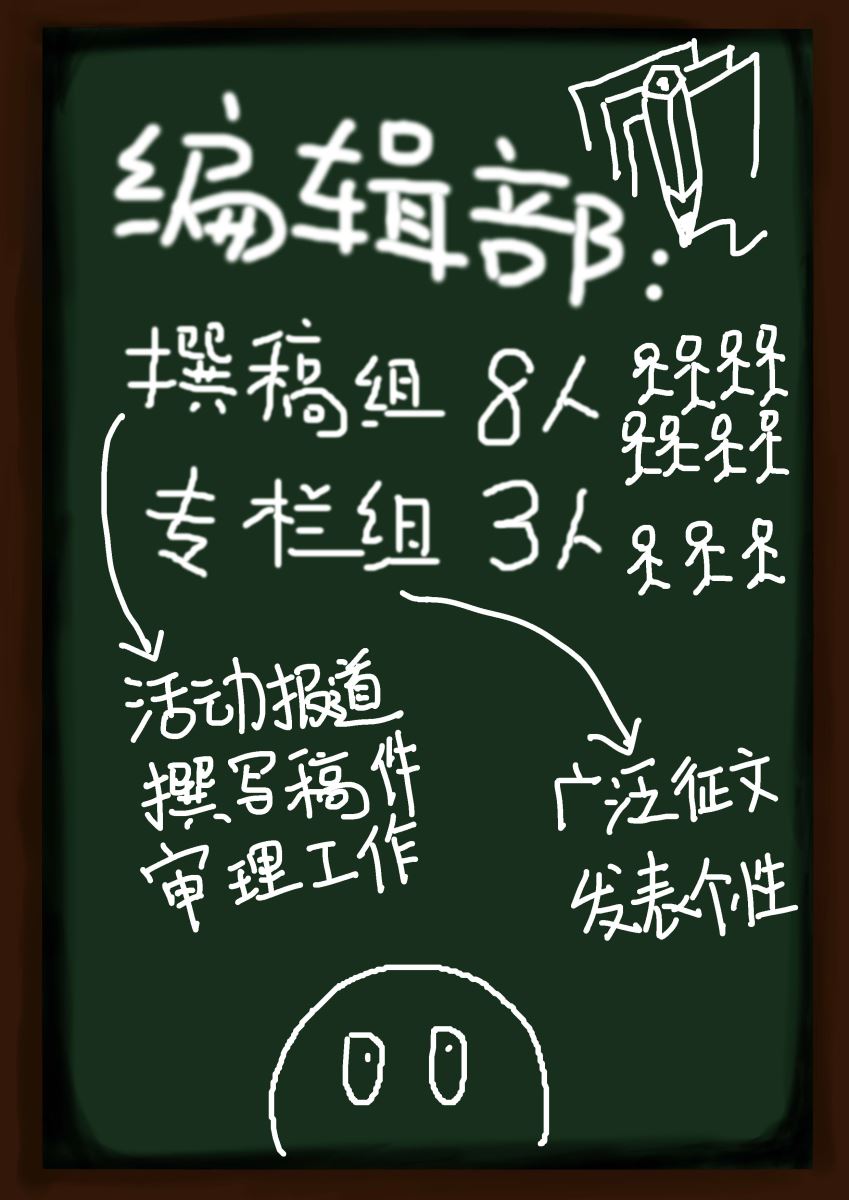 编辑部:
撰稿组 8人
专栏组 3人
活动报道
撰写稿件
审理工作
广泛征文
发表个性